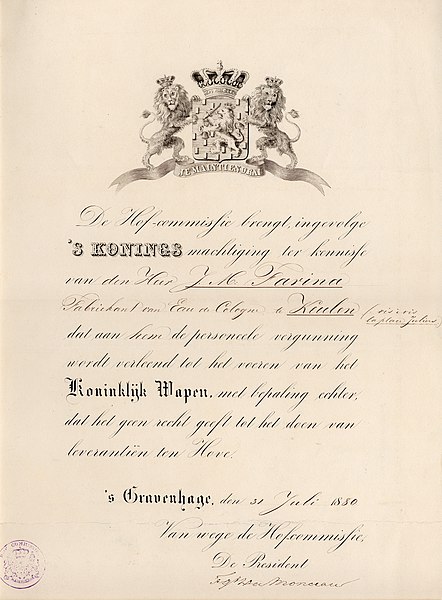 JE MAINTIENDRAI
De Hof-commissie brengt, ingevolge
'S KONINGS machtiging ter kennisse
van den Heer J. M. Farina
Fabrikant van Eau de Cologne te Keulen (vis à vis
la place Juliers
dat aan hem de personeele vergunning
wordt verleend tot het voeren van het
Koninklijk Wapen, met bepaling echter,
dat het geen recht geeft tot het doen van
leverantiën ten Hove.
's Gravenhage, den 31 Juli 1880
Van wege de Hofcommissie,
De President